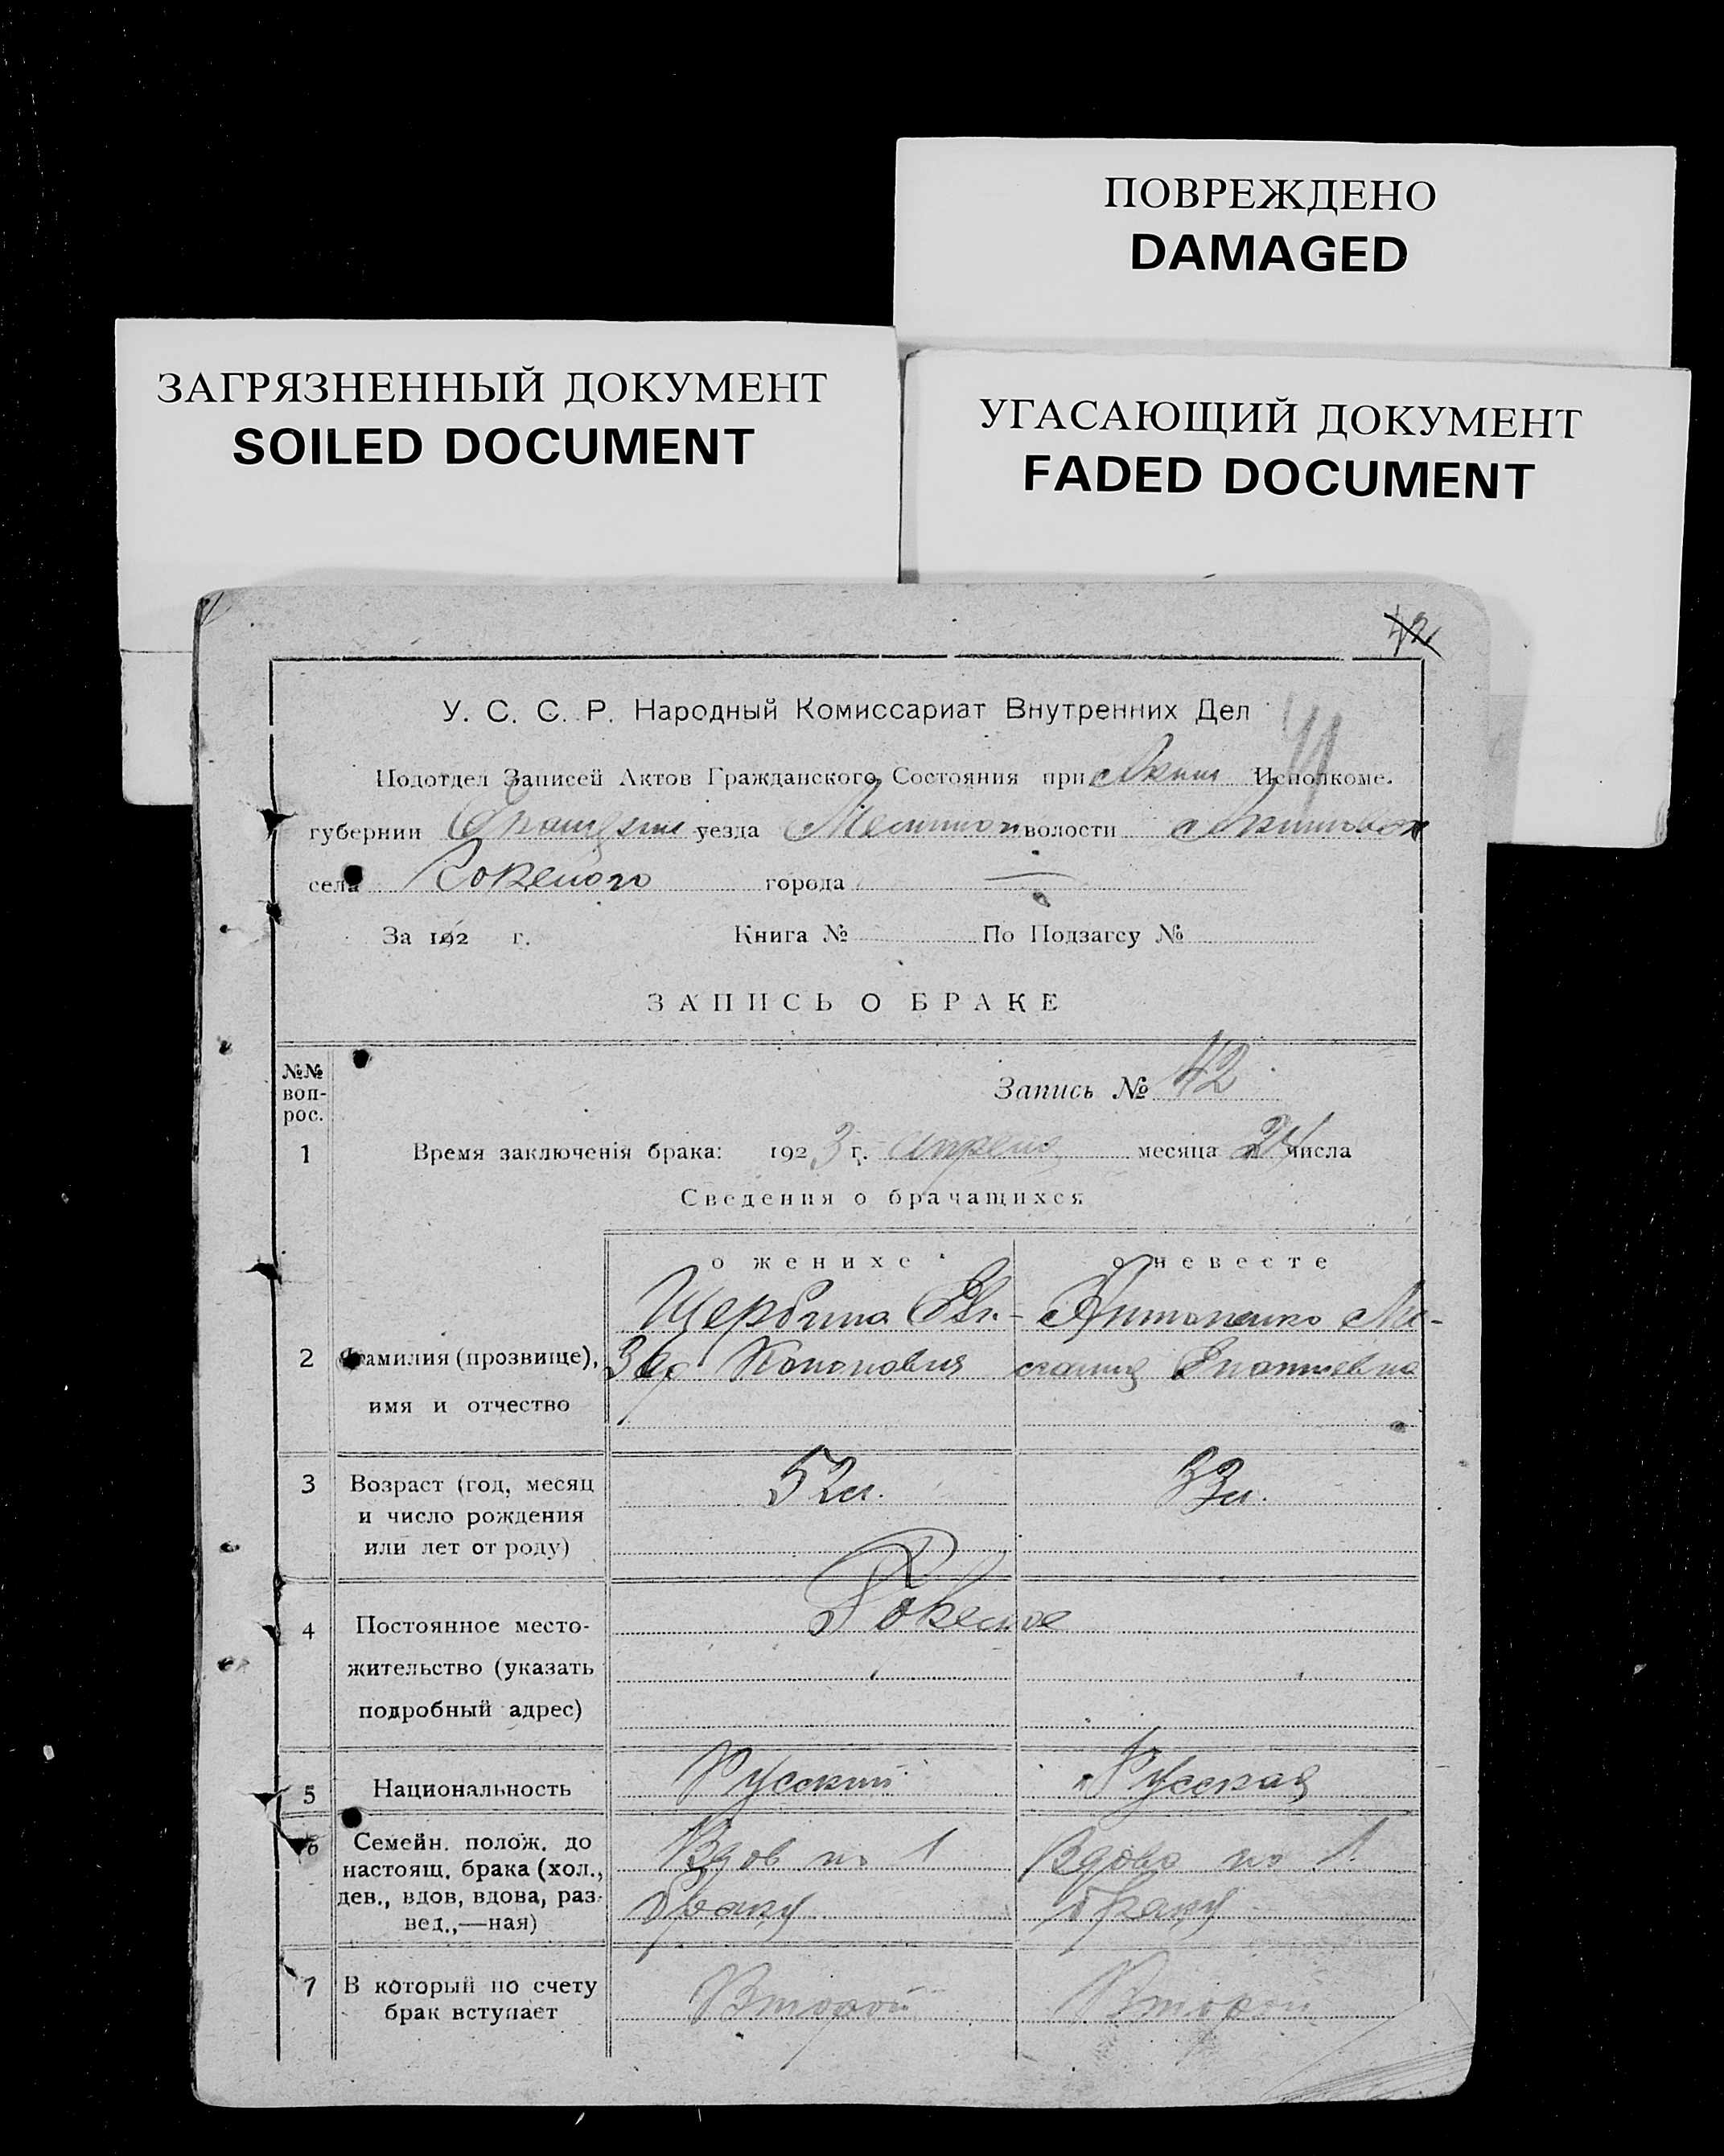 ПОВРЕЖДЕНО
DAMAGED
ЗАГРЯЗНЕННЫЙ ДОКУМЕНТ
SOILED DOCUMENT
УГАСАЮЩИЙ ДОКУМЕНТ
FADED DOCUMENT
42
У. С. С. Р. Народный Комиссариат Внутренних Дел
Подотдел Записей Актов Гражданского Состояния при Исполкоме.
губернии уезда волости
села города —
За 192 г. Книга № По Подзагсу №
ЗАПИСЬ О БРАКЕ
№№ воп-рос.
Запись № 42
1 Время заключенія брака: 1923 г. апреля месяца 24 числа
Сведения о брачащихся
о женихе о невесте
Щербина Ев.- Антоненко
2 Фамилия (прозвище), Кононович
имя и отчество
3 Возраст (год, месяц 52 л. 33 л.
и число рождения
или лет от роду)
4 Постоянное место-
жительство (указать
подробный адрес)
5 Национальность Русский Русская
6 Семейн. полож. до Вдов по 1 Вдова по 1
настоящ. брака (хол.,
дев., вдов, вдова, раз- браку браку
вед.,—ная)
7 В который по счету Второй Второй
брак вступает